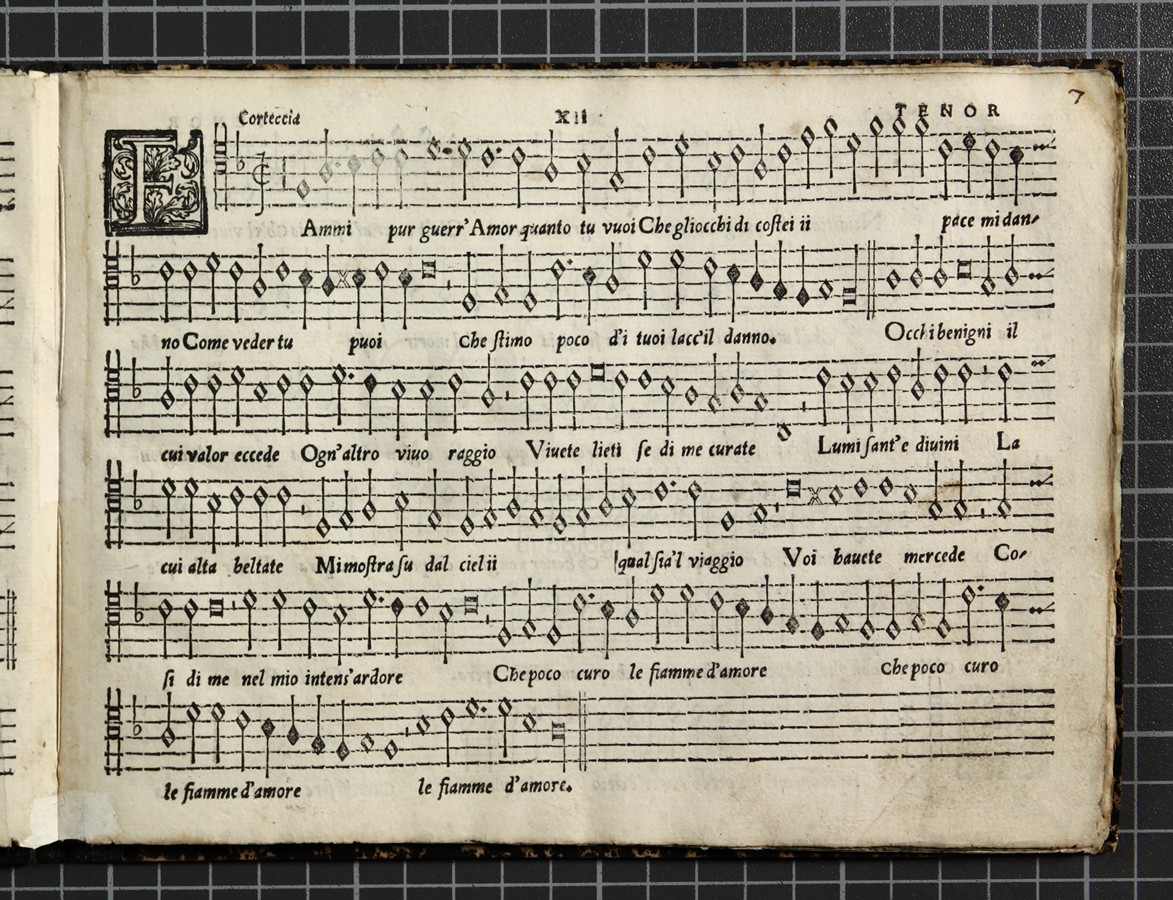 Corteccia XII TENOR 7
F Ammi pur guerr'Amor quanto tu vuoi Che gliocchi di costei ii pace mi dan-
no Come veder tu puoi che stimo poco d'i tuoi lacc'il danno. Occhi benigni il
cui valor eccede Ogn'altro viuo raggio Viuete lieti se di me curate Lumi sant'e diuini La
cui alta beltate Mi mostra su dal ciel ii qual sia'l viaggio Voi hauete mercede Co-
si di me nel mio intens'ardore Che poco curo le fiamme d'amore Che poco curo
le fiamme d'amore le fiamme d'amore.